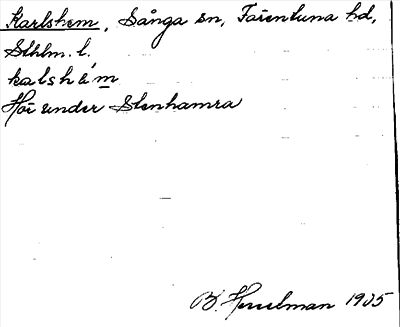 Karlshem, Sånga sn, Färentuna hd,
Sthlm. l.
kalshä́m
Hör under Stenhamra
B. Hesselman 1905